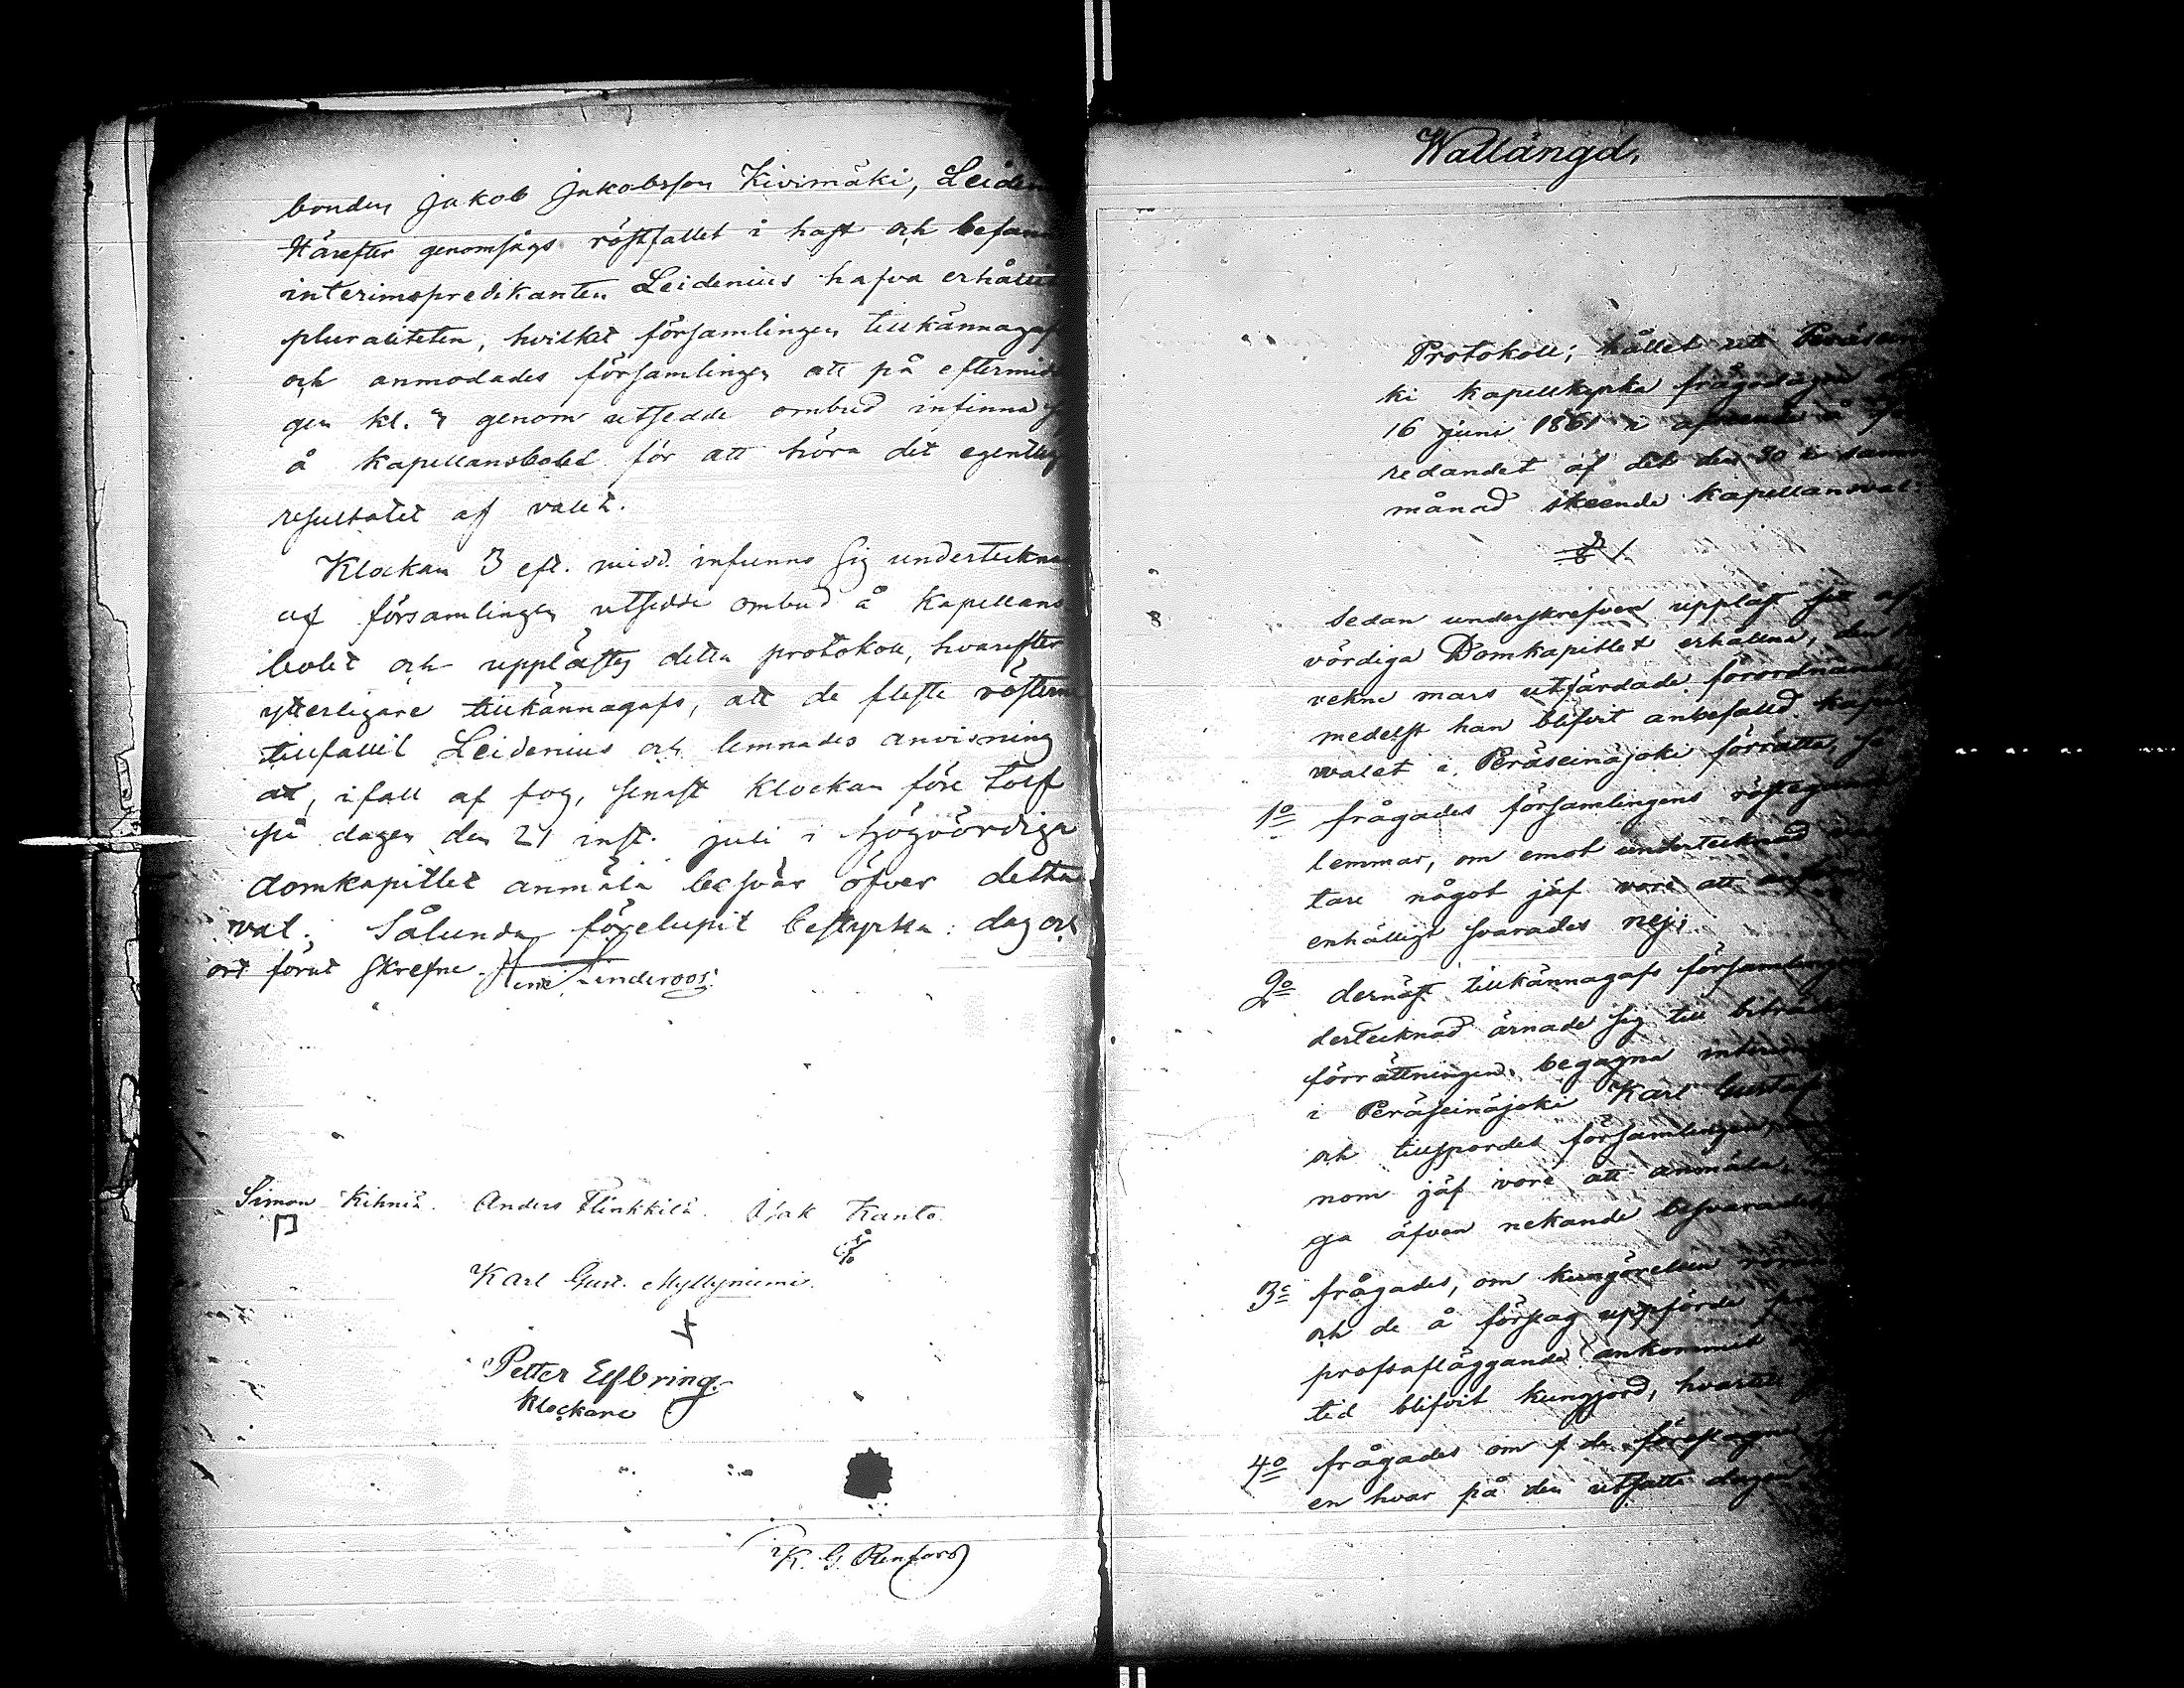 bonden Jakob Jakobsson Kivimäki, Leiden
Härefter genomsågs röstfallet i hast och befann
interimspredikanten Leidenius hafva erhållit
pluraliteten, hvilket församlingen tillkännagafs
och anmodades församlingen att på eftermid
gen kl. 3 genom utsedde ombud infinna
å Kapellansbolet för att höra det egentliga
resultatet af valet.
Klockan 3 eft. midd. infunno sig underteckna
af församlingen utsedde ombud å Kapellans
bolet och upplästes detta protokoll, hvarefter
ytterligare tillkännagafs, att de flesta rösterna
tillfallit Leidenius och lemnades anvisning
at, i fall af fog, senast klockan före tolf
på dagen den 21 inst. juli i Högvördiga
domkapitlet anmäla besvär öfver detta
val. Sålunda förelupit bestyrka: dag och
ort förut skrefne. Henr. Linderoos.
Simon Kihniä. Anders Flinkkilä. Isak Kanto
Karl Gust. Myllyniemi.
Petter Elfbring.
Klockare
K. G. Renfors
Wallängd.
Protokoll, hållet uti Peräsein
ki kapellkyrka frågodagen d
16 juni 1861 i afseende å
redandet af det den 30 i samm
månad skeende kapellansval.
Sedan underskrefven uppläst sit af
vördiga Domkapitlet erhållna, den
vekne mars utfärdade förordnande
medelst han blifvit anbefalld kape
valet i Peräseinäjoki förrätta, så
1o frågades församlingens röstegande
lemmar, om emot undertecknad
tare något jäf vore att anför
enhälligt svarades nej;
2o dernäst tillkännagafs församlingen
dertecknad ärnade sig till biträde
förrättningen begagna interims
i Peräseinäjoki Karl Gustaf
och tillspordes församlingen
nom jäf vore att anmäla,
ga äfven nekande besvarades
3o frågades, om kungörelsen röran
och de å förslag uppförde
profsafläggande ankommit
tid blifvit kungjord, hvartill
4o frågades om de föreslagne
en hvar på den utsatte dagen